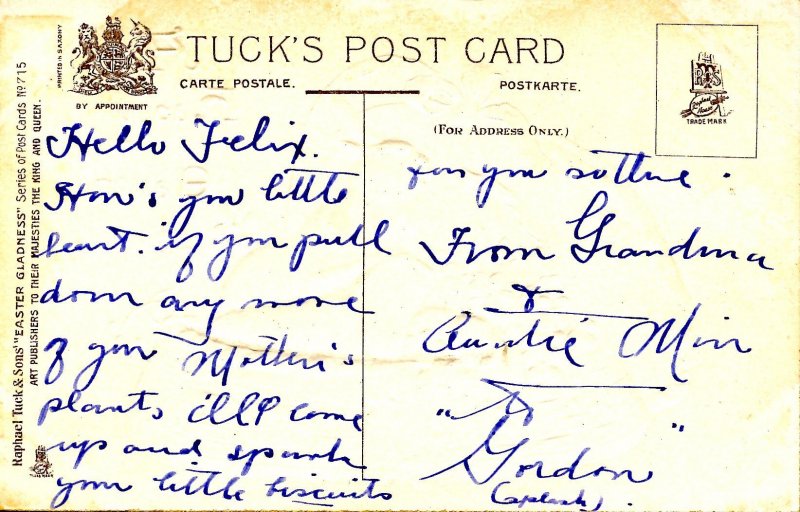 TUCK'S POST CARD
CARTE POSTALE.
POSTKARTE.
PRINTED IN SAXONY
BY APPOINTMENT
(For Address Only.)
TRADE MARK
Raphael Tuck & Sons' "EASTER GLADNESS" Series of Post Cards No 715
ART PUBLISHERS TO THEIR MAJESTIES THE KING AND QUEEN.
Hello Felix.
How's you little
heart. if you pull
down any more
of your Mother's
plants I'll come
up and spank
your little biscuits
for you
From Grandma
&
Auntie Min
&
"Gordon"
(splash).